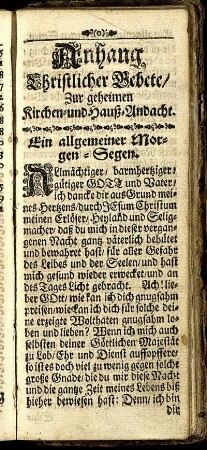 (0)
Anhang
Christlicher Gebete/
Zur geheimen
Kirchen-und Hauß-Andacht.
Ein allgemeiner Mor-
gen-Segen.
Allmächtiger/ barmhertziger/
gütiger GOTT und Vater/
ich dancke dir aus Grund mei-
nes Hertzens/durch JEsum Christum
meinen Erlöser/ Heyland und Selig-
macher/ daß du mich in dieser vergan-
genen Nacht gantz väterlich behütet
und bewahret hast/ für aller Gefahr
des Leibes und der Seelen/ und hast
mich gesund wieder erwecket/und an
des Tages Licht gebracht. Ach! lie-
ber GOtt/ wie kan ich dich gnugsahm
preisen/wie kan ich dich für solche dei-
ne erzeigte Wolthaten gnugsahm lo-
ben und lieben? Wenn ich mich auch
selbsten deiner Göttlichen Majestät
zu Lob/ Ehr und Dienst auffopffere/
so ist es doch viel zu wenig gegen solche
große Gnade/ die du mir diese Nacht
und die gantze Zeit meines Lebens biß
hieher bewiesen hast: Denn/ ich bin
dir